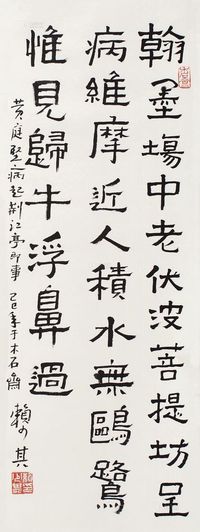 翰墨塲中老伏波菩提坊里
病維摩近人積水無鷗鷺
惟見歸牛浮鼻過
黄庭堅病起荆江亭即事 己巳年于木石齋 賴少其